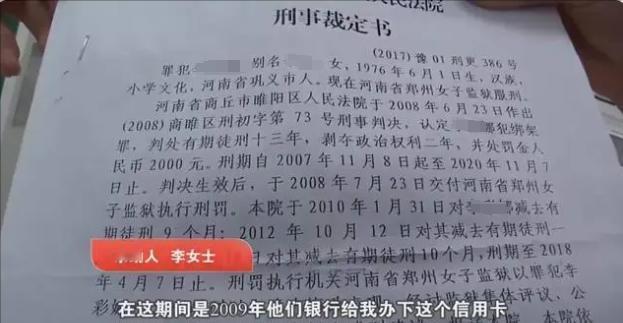 民法院
刑事裁定书
(2017)豫01刑更386号
罪犯 别名 女,1976年6月1日生,汉族,
小学文化,河南省巩义市人。现在河南省郑州女子监狱服刑。
河南省商丘市睢阳区人民法院于2008年6月23日作出
(2008)商睢区刑初字第73号刑事判决,认定 犯绑架
罪,判处有期徒刑十三年,剥夺政治权利二年,并处罚金人
民币2000元。刑期自2007年11月8日起至2020年11月7
日止。判决生效后,于2008年7月23日交付河南省郑州女
子监狱执行刑罚。本院于2010年1月31日对 减去有
期徒刑9个月;2012年10月12日对其减去有期徒刑一
日对其减去有期徒刑10个月,刑期至2018
年4月7日止。刑罚执行机关河南省郑州女子监狱以罪犯李
李女士
在这期间是2009年他们银行给我办下这个信用卡